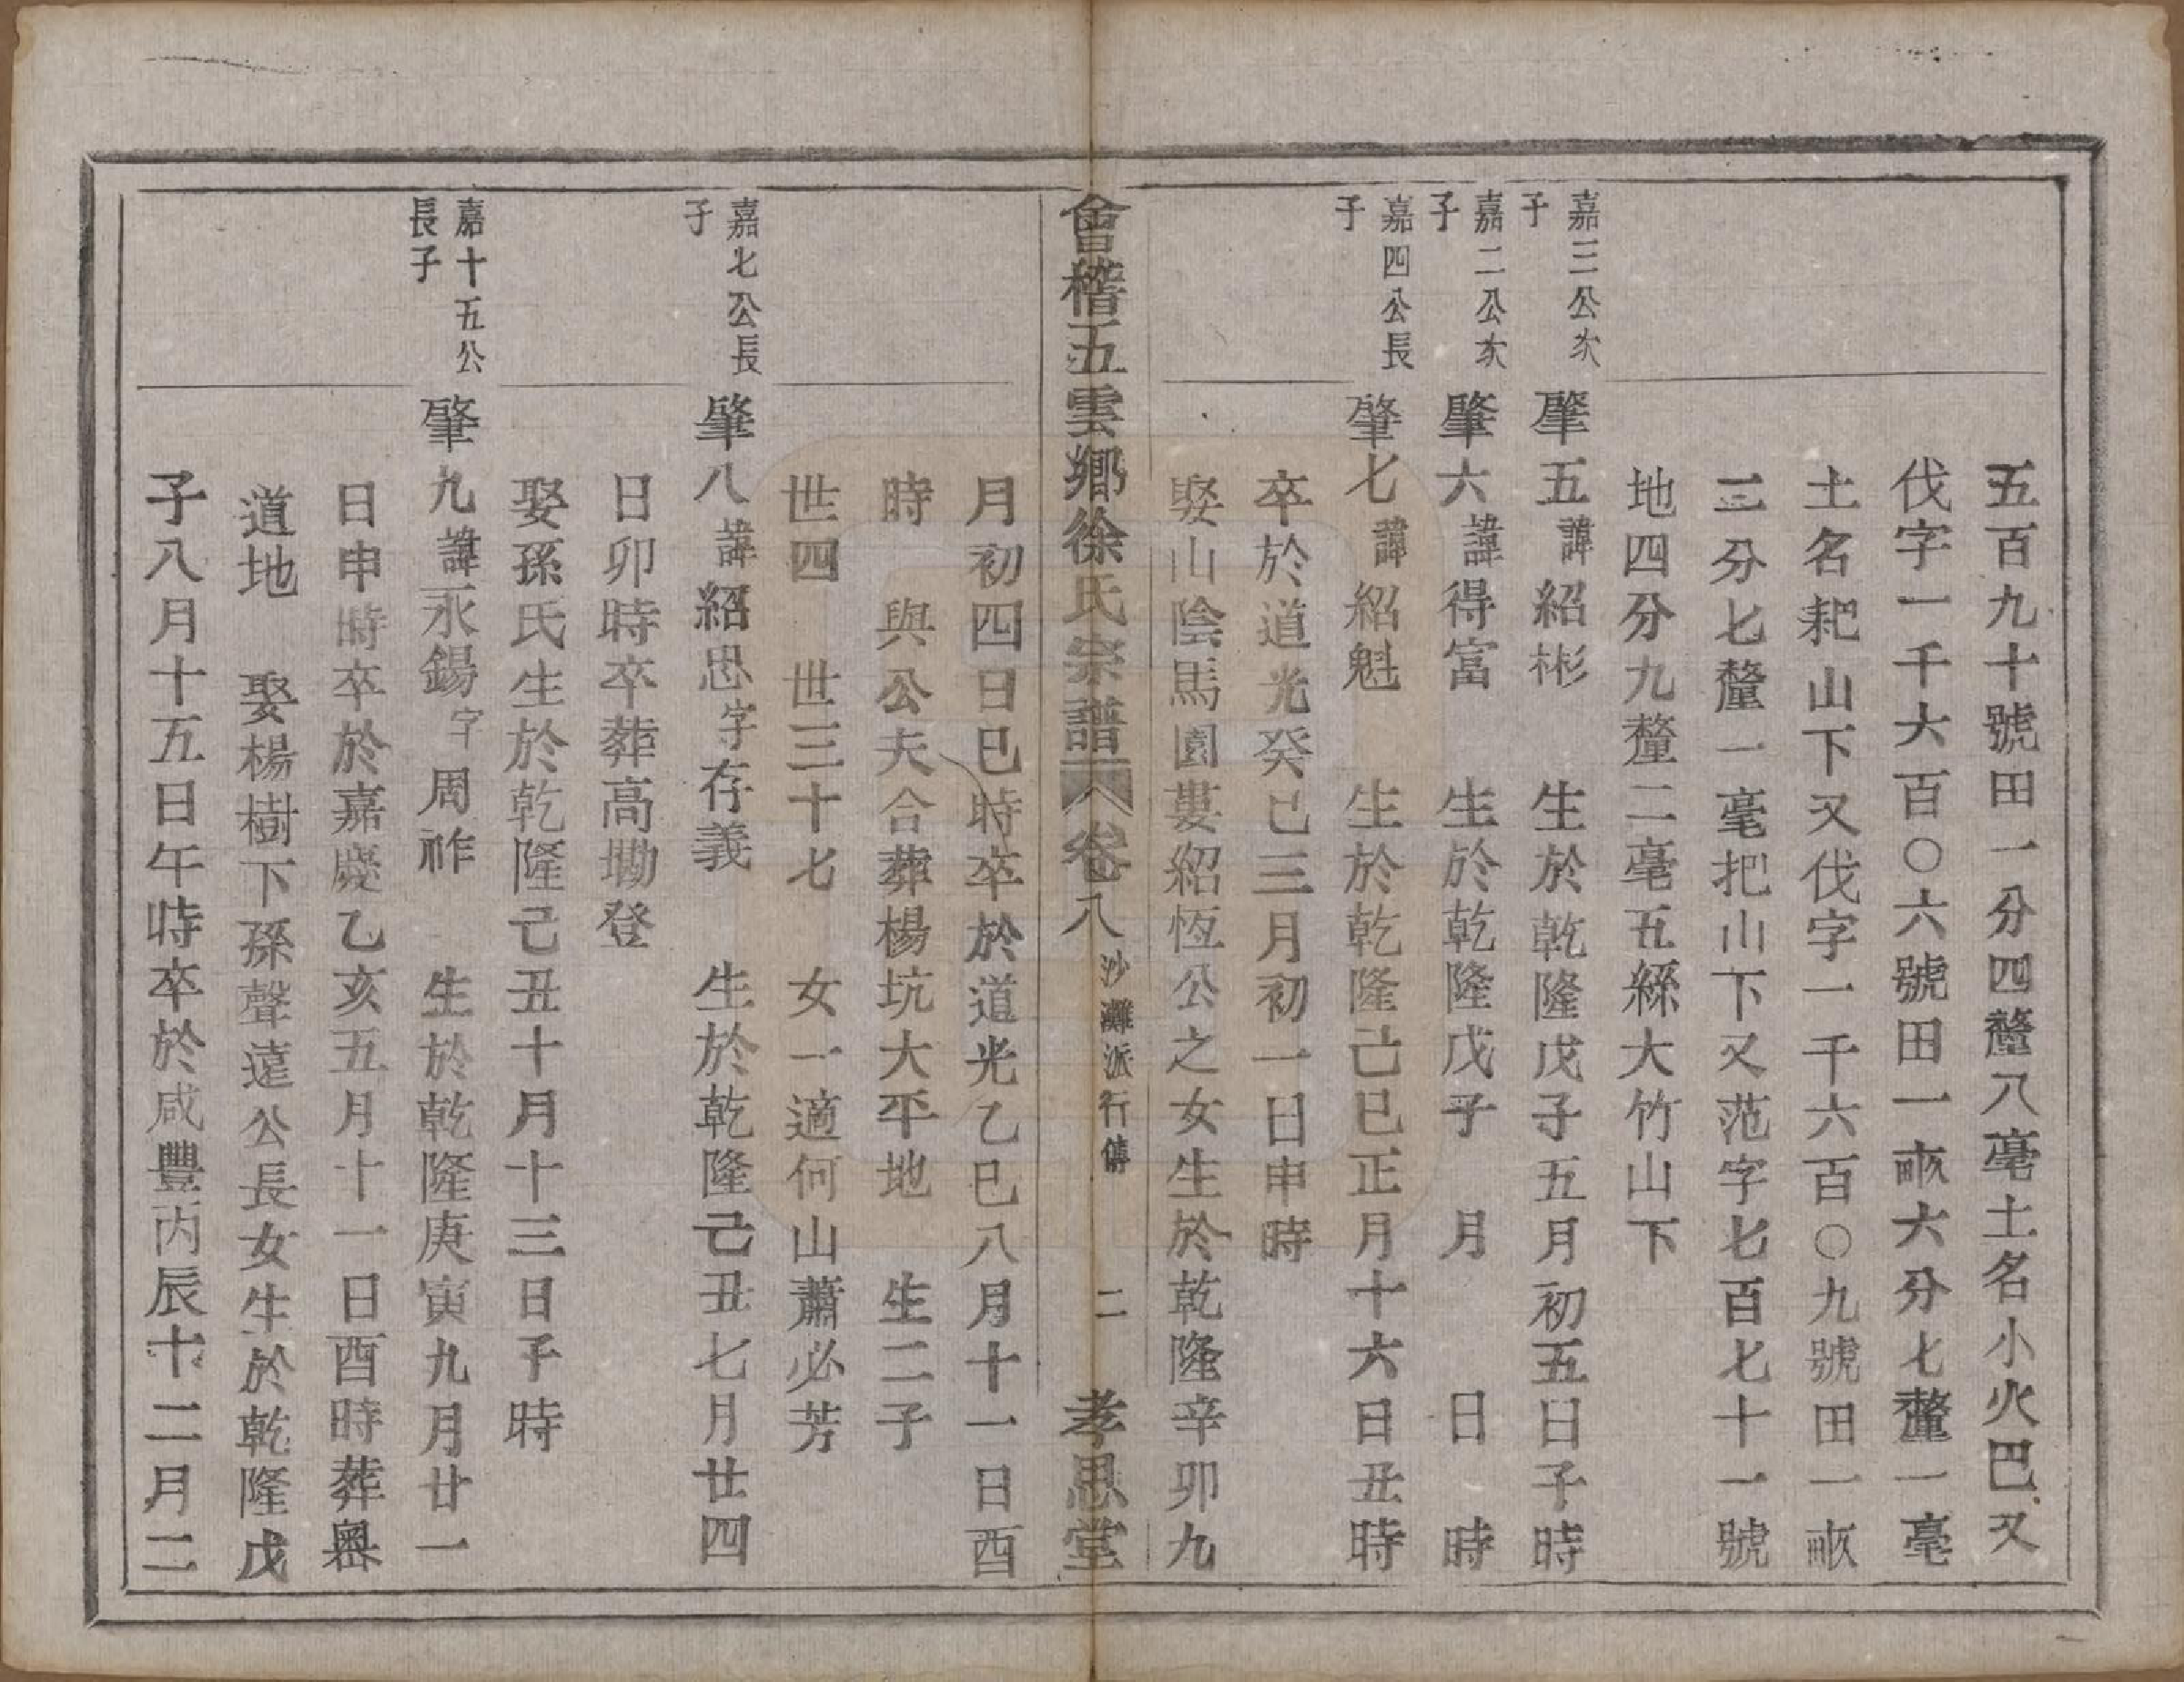 五百九十號田一分四釐八毫土名小火巴又
伐字一千六百〇六號田一畝六分七釐一毫
土名耙山下又伐字一千六百〇九號田一畝
三分七釐一毫把山下又范字七百七十一號
地四分九釐二毫五絲大竹山下
嘉三公次子
肇五諱紹彬 生於乾隆戊子五月初五日子時
嘉二公次子
肇六諱得富 生於乾隆戊子 月 日 時
嘉四公長子
肇七諱紹魁 生於乾隆己巳正月十六日丑時
卒於道光癸巳三月初一日申時
娶山陰馬園婁紹恆公之女生於乾隆辛卯九
會稽五雲鄉徐氏宗譜 卷八 沙灘派行傳 二 孝思堂
月初四日巳時卒於道光乙巳八月十一日酉
時 與公夫合葬楊坑大平地 生二子
世四 世三十七 女一適何山蕭必芳
嘉七公長子
肇八諱紹思字存義 生於乾隆己丑七月廿四
日卯時卒葬高墈登
娶孫氏生於乾隆己丑十月十三日子時
嘉十五公長子
肇九諱永錫字周祚 生於乾隆庚寅九月廿一
日申時卒於嘉慶乙亥五月十一日酉時葬嶴
道地 娶楊樹下孫聲遠公長女生於乾隆戊
子八月十五日午時卒於咸豐丙辰十二月二